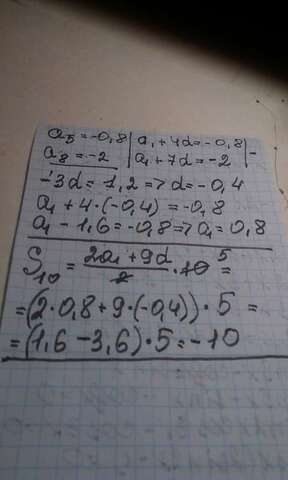 a₅ = -0,8 | a₁ + 4d = -0,8 | -
a₈ = -2 | a₁ + 7d = -2
-3d = 1,2 => d = -0,4
a₁ + 4·(-0,4) = -0,8
a₁ - 1,6 = -0,8 => a₁ = 0,8
S₁₀ = (2a₁ + 9d)/2 · 10 5 =
= (2·0,8 + 9·(-0,4))·5 =
= (1,6 - 3,6)·5 = -10